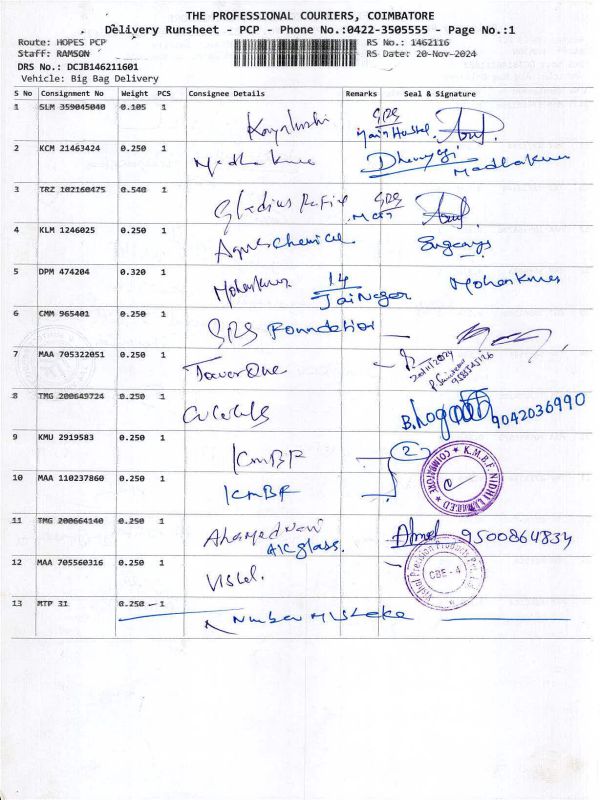 THE PROFESSIONAL COURIERS, COIMBATORE
Delivery Runsheet - PCP - Phone No.:0422-3505555 - Page No.:1
Route: HOPES PCP RS No.: 1462116
Staff: RAMSON RS Date: 20-Nov-2024
DRS No.: DCJB146211601
Vehicle: Big Bag Delivery
S No Consignment No Weight PCS Consignee Details Remarks Seal & Signature
1 SLM 359045040 0.105 1
2 KCM 21463424 0.250 1 Madhakumar
3 TRZ 102160475 0.540 1 Gladius
4 KLM 1246025 0.250 1 Agnes chemical
5 DPM 474204 0.320 1 Mohankumar 14 Jai Nagar Mohankumar
6 CMM 965401 0.250 1 SRS Foundation
7 MAA 705322051 1 0.250 1 TowerOne 20/11/2024
8 TMG 200649724 0.250 1 9042036990
9 KMU 2919583 0.250 1 KMBF 2
10 MAA 110237860 0.250 1 KMBF K.M.B.F NIDHI LIMITED COIMBATORE
11 TMG 200664140 0.250 1 AK glass. 9500864834
12 MAA 705560316 0.250 1 Vishal. CBE - 4
13 MTP 31 0.250 1 Number Mistake